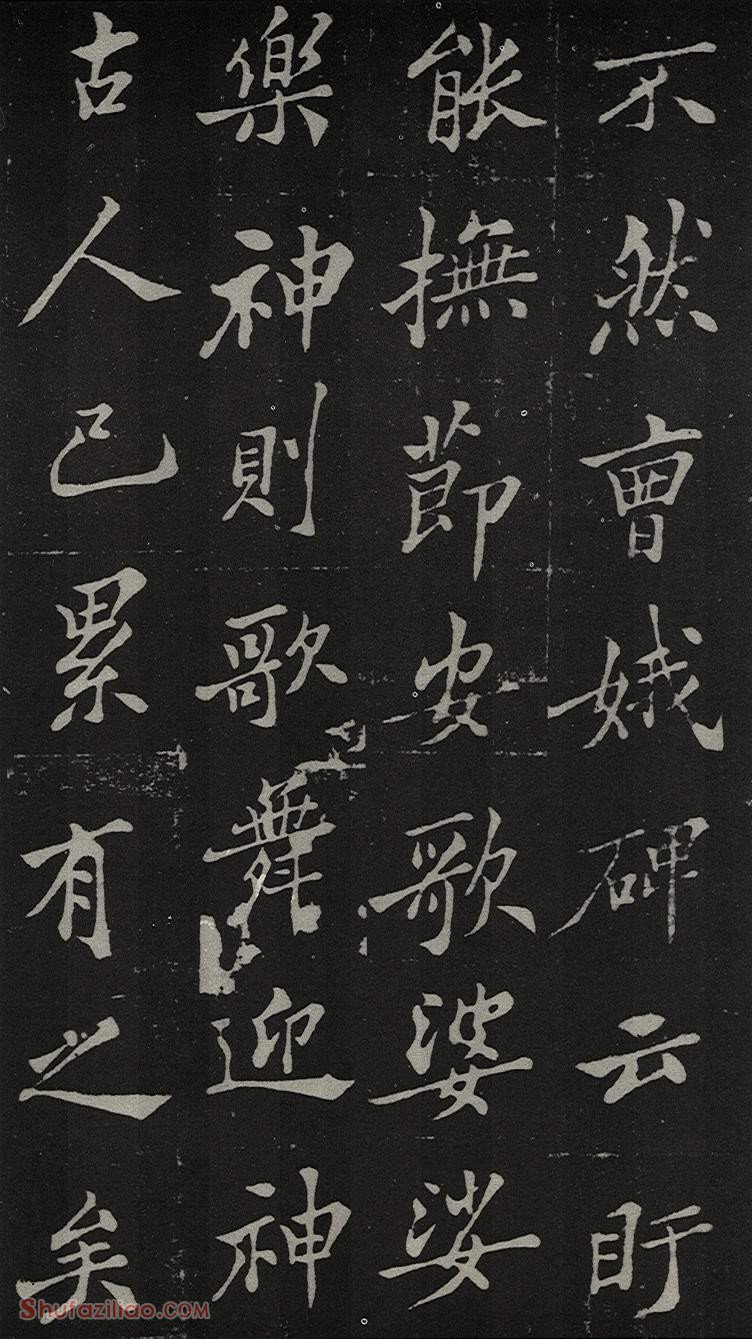 不然曹娥碑云盱
能撫節安歌婆娑
樂神則歌舞迎神
古人已累有之矣
Shufaziliao.com